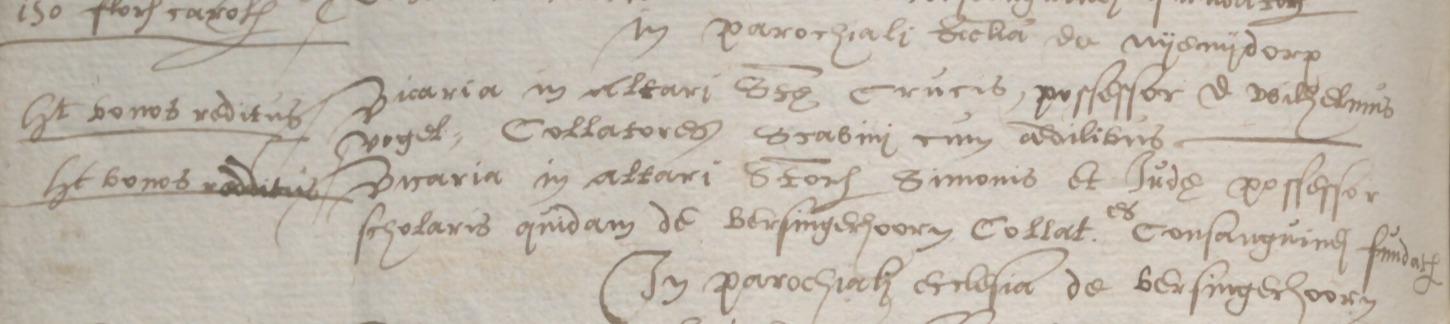 150 flor. carol.
In parochiali Ecclia de nijenijdorp
Ht bonos reditus Vicaria in Altari Ste Crucis, possessor D wilhelmus
vogel, Collatores Scabini cum aedilibus
Ht bonos redditus Vicaria in altari Storum Simonis et Jude possessor
scholaris quidam de Versingerhoorn Collat.es Consanguinei fundator.
In parochiali ecclesia de Versingerhoorn